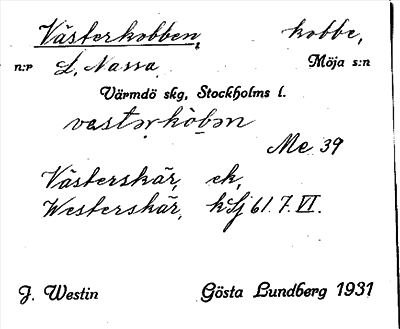 Västerkobben, kobbe,
n:r L. Nassa Möja s:n
Värmdö skg, Stockholms l.
vastərkòbən
Me 39
Västerskär, ek,
Westerskär, hSj 61.7.VI.
J. Westin Gösta Lundberg 1931